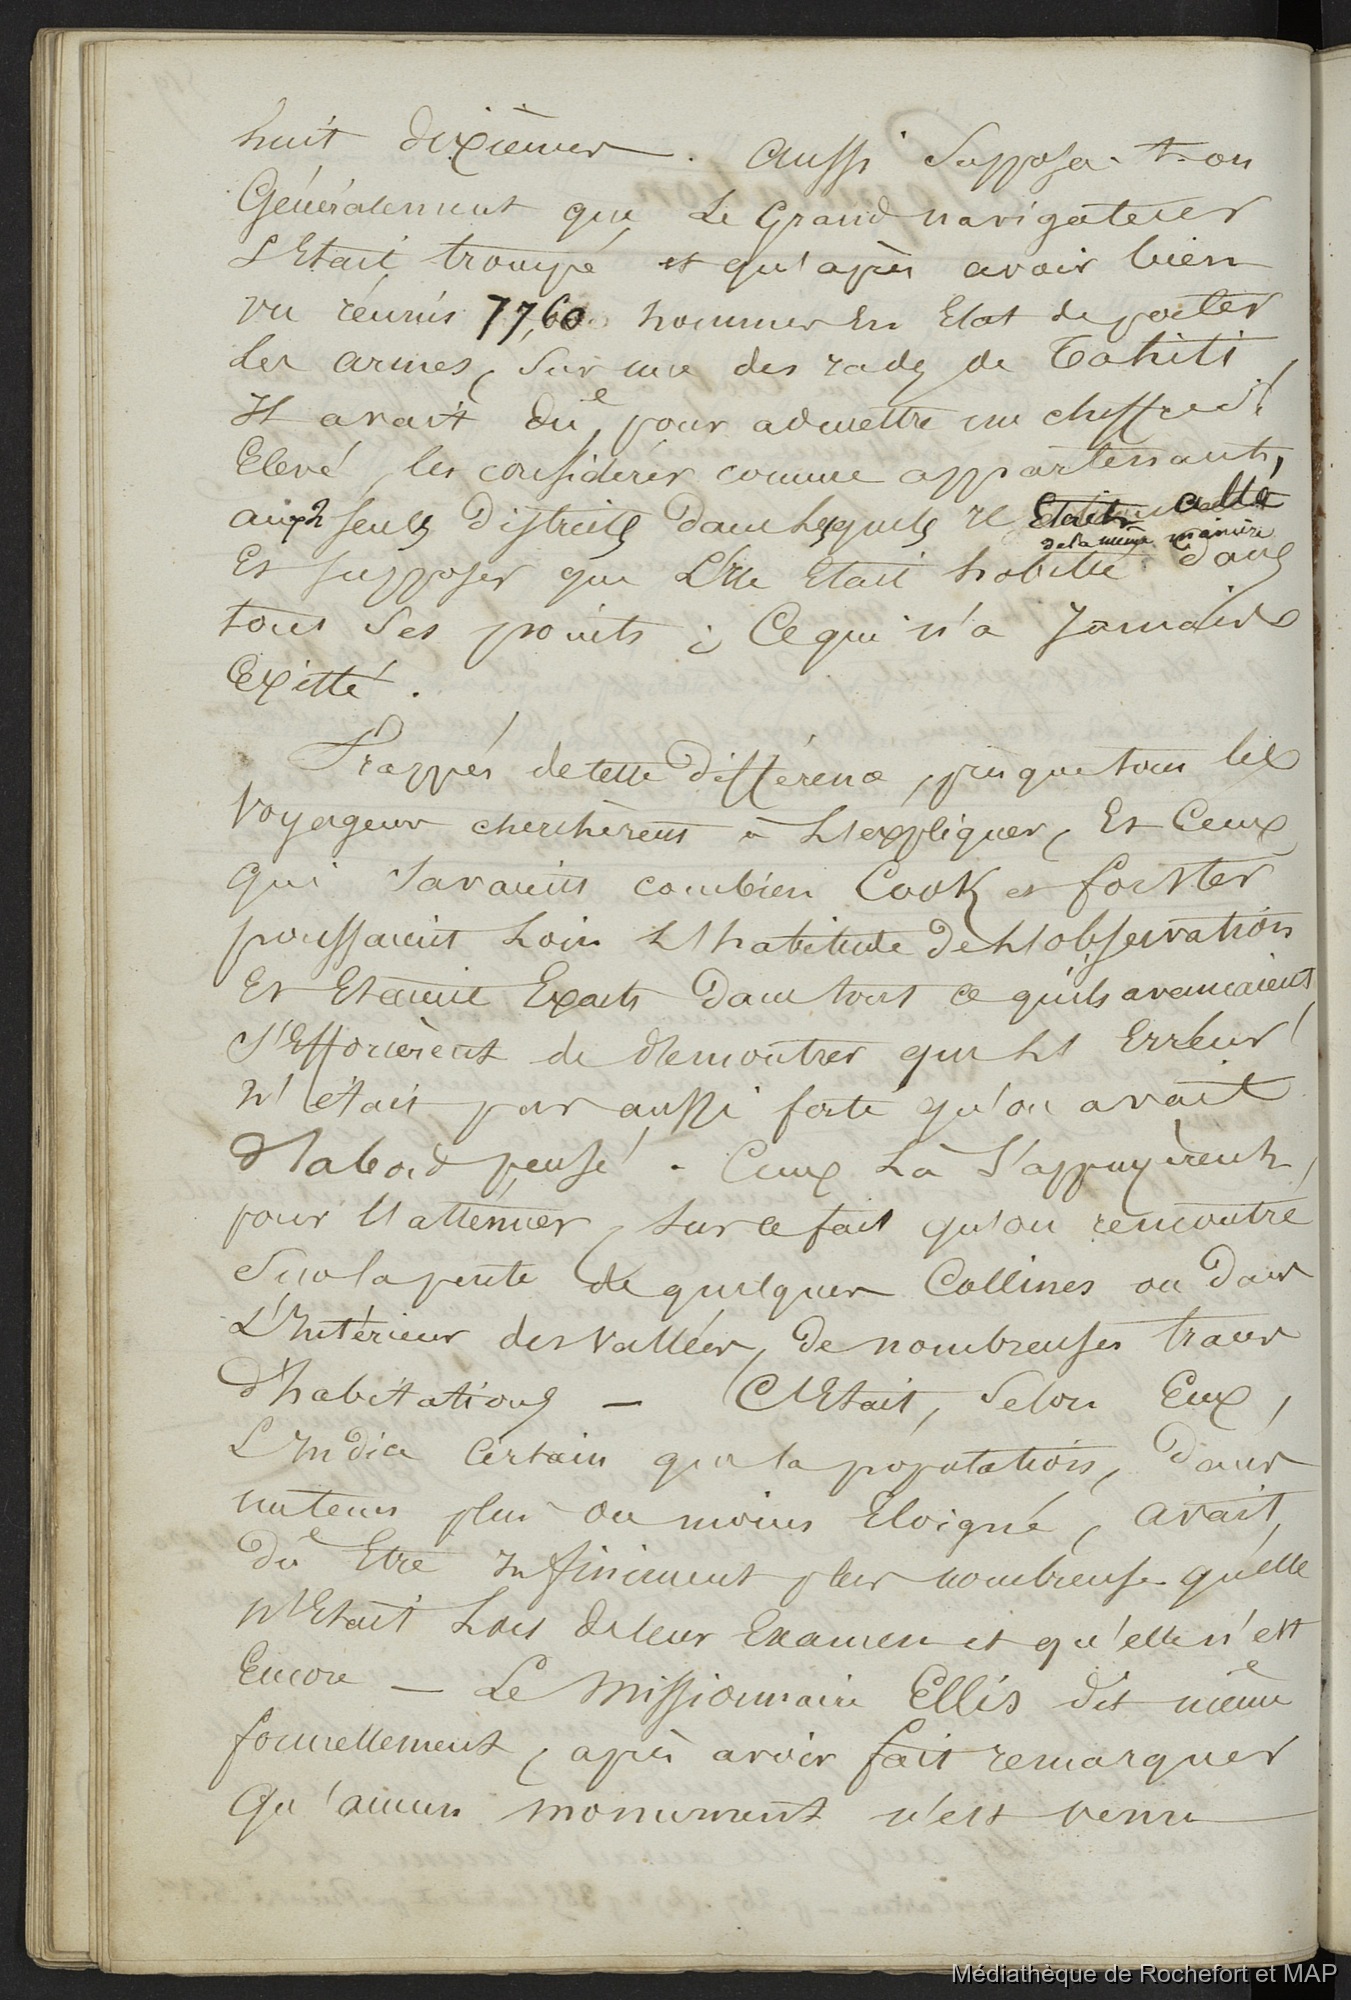 huit dixièmes. Aussi supposa-t-on
Généralement que Le Grand navigateur
S'Etait trompé et qu'après avoir bien
vu réunis 7760 hommes En Etat de porter
Les armes, Sur une des rades de Tahiti
Il avait dû, pour admettre un chiffre si
Elevé, les considérer comme appartenant,
aux 2 seuls Districts dans lesquels il Etait allé
de la même manière
Et supposer que L'Ile Etait habitée dans
tous Ses points ; Ce qui n'a Jamais
Existé.
Frappés de cette Différence, presque tous les
Voyageurs cherchèrent à L'expliquer, Et Ceux
qui Savaient combien Cook et forster
poussaient Loin L'habitude de L'observation
Et Etaient Exacts dans tout ce qu'ils avançaient
S'Efforcèrent de démontrer que L'Erreur
n'était pas aussi forte qu'on avait
D'abord pensé. Ceux Là S'appuyèrent,
pour L'atténuer, Sur ce fait qu'on rencontre
Sur la pente de quelques Collines ou Dans
L'Intérieur des Vallées, De nombreuses traces
d'habitations — C'Etait, Selon Eux,
L'Indice Certain que la population, Dans
un tems plus ou moins Eloigné, avait
Dû Etre Infiniment plus nombreuse qu'elle
n'Etait Lors de leur Examen et qu'elle n'est
Encore — Le Missionnaire Ellis dit même
formellement, après avoir fait remarquer
Qu'aucun monument n'est venu
Médiathèque de Rochefort et MAP